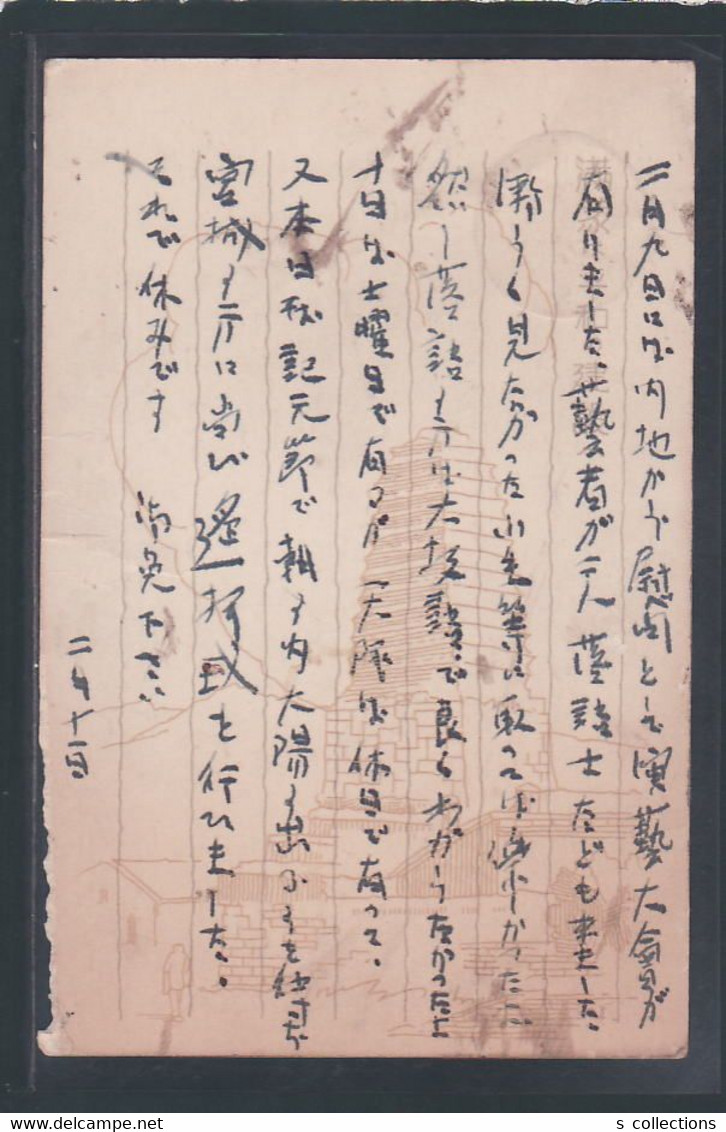 二月九日には内地から慰問として演藝大會が
有りました、藝者が二人落語士なども来ました。
漸らく見なかった小生等に取っては楽しかったが
然し落語の方は大坂語で良くわからなかったよ
十日は土曜日で有るが大隊は休日で有って、
又本日は紀元節で朝の内太陽の出るのを
宮城の方に向ひ遙拝式を行ひました。
それで休みです 御免下さい
二月十一日
s collections